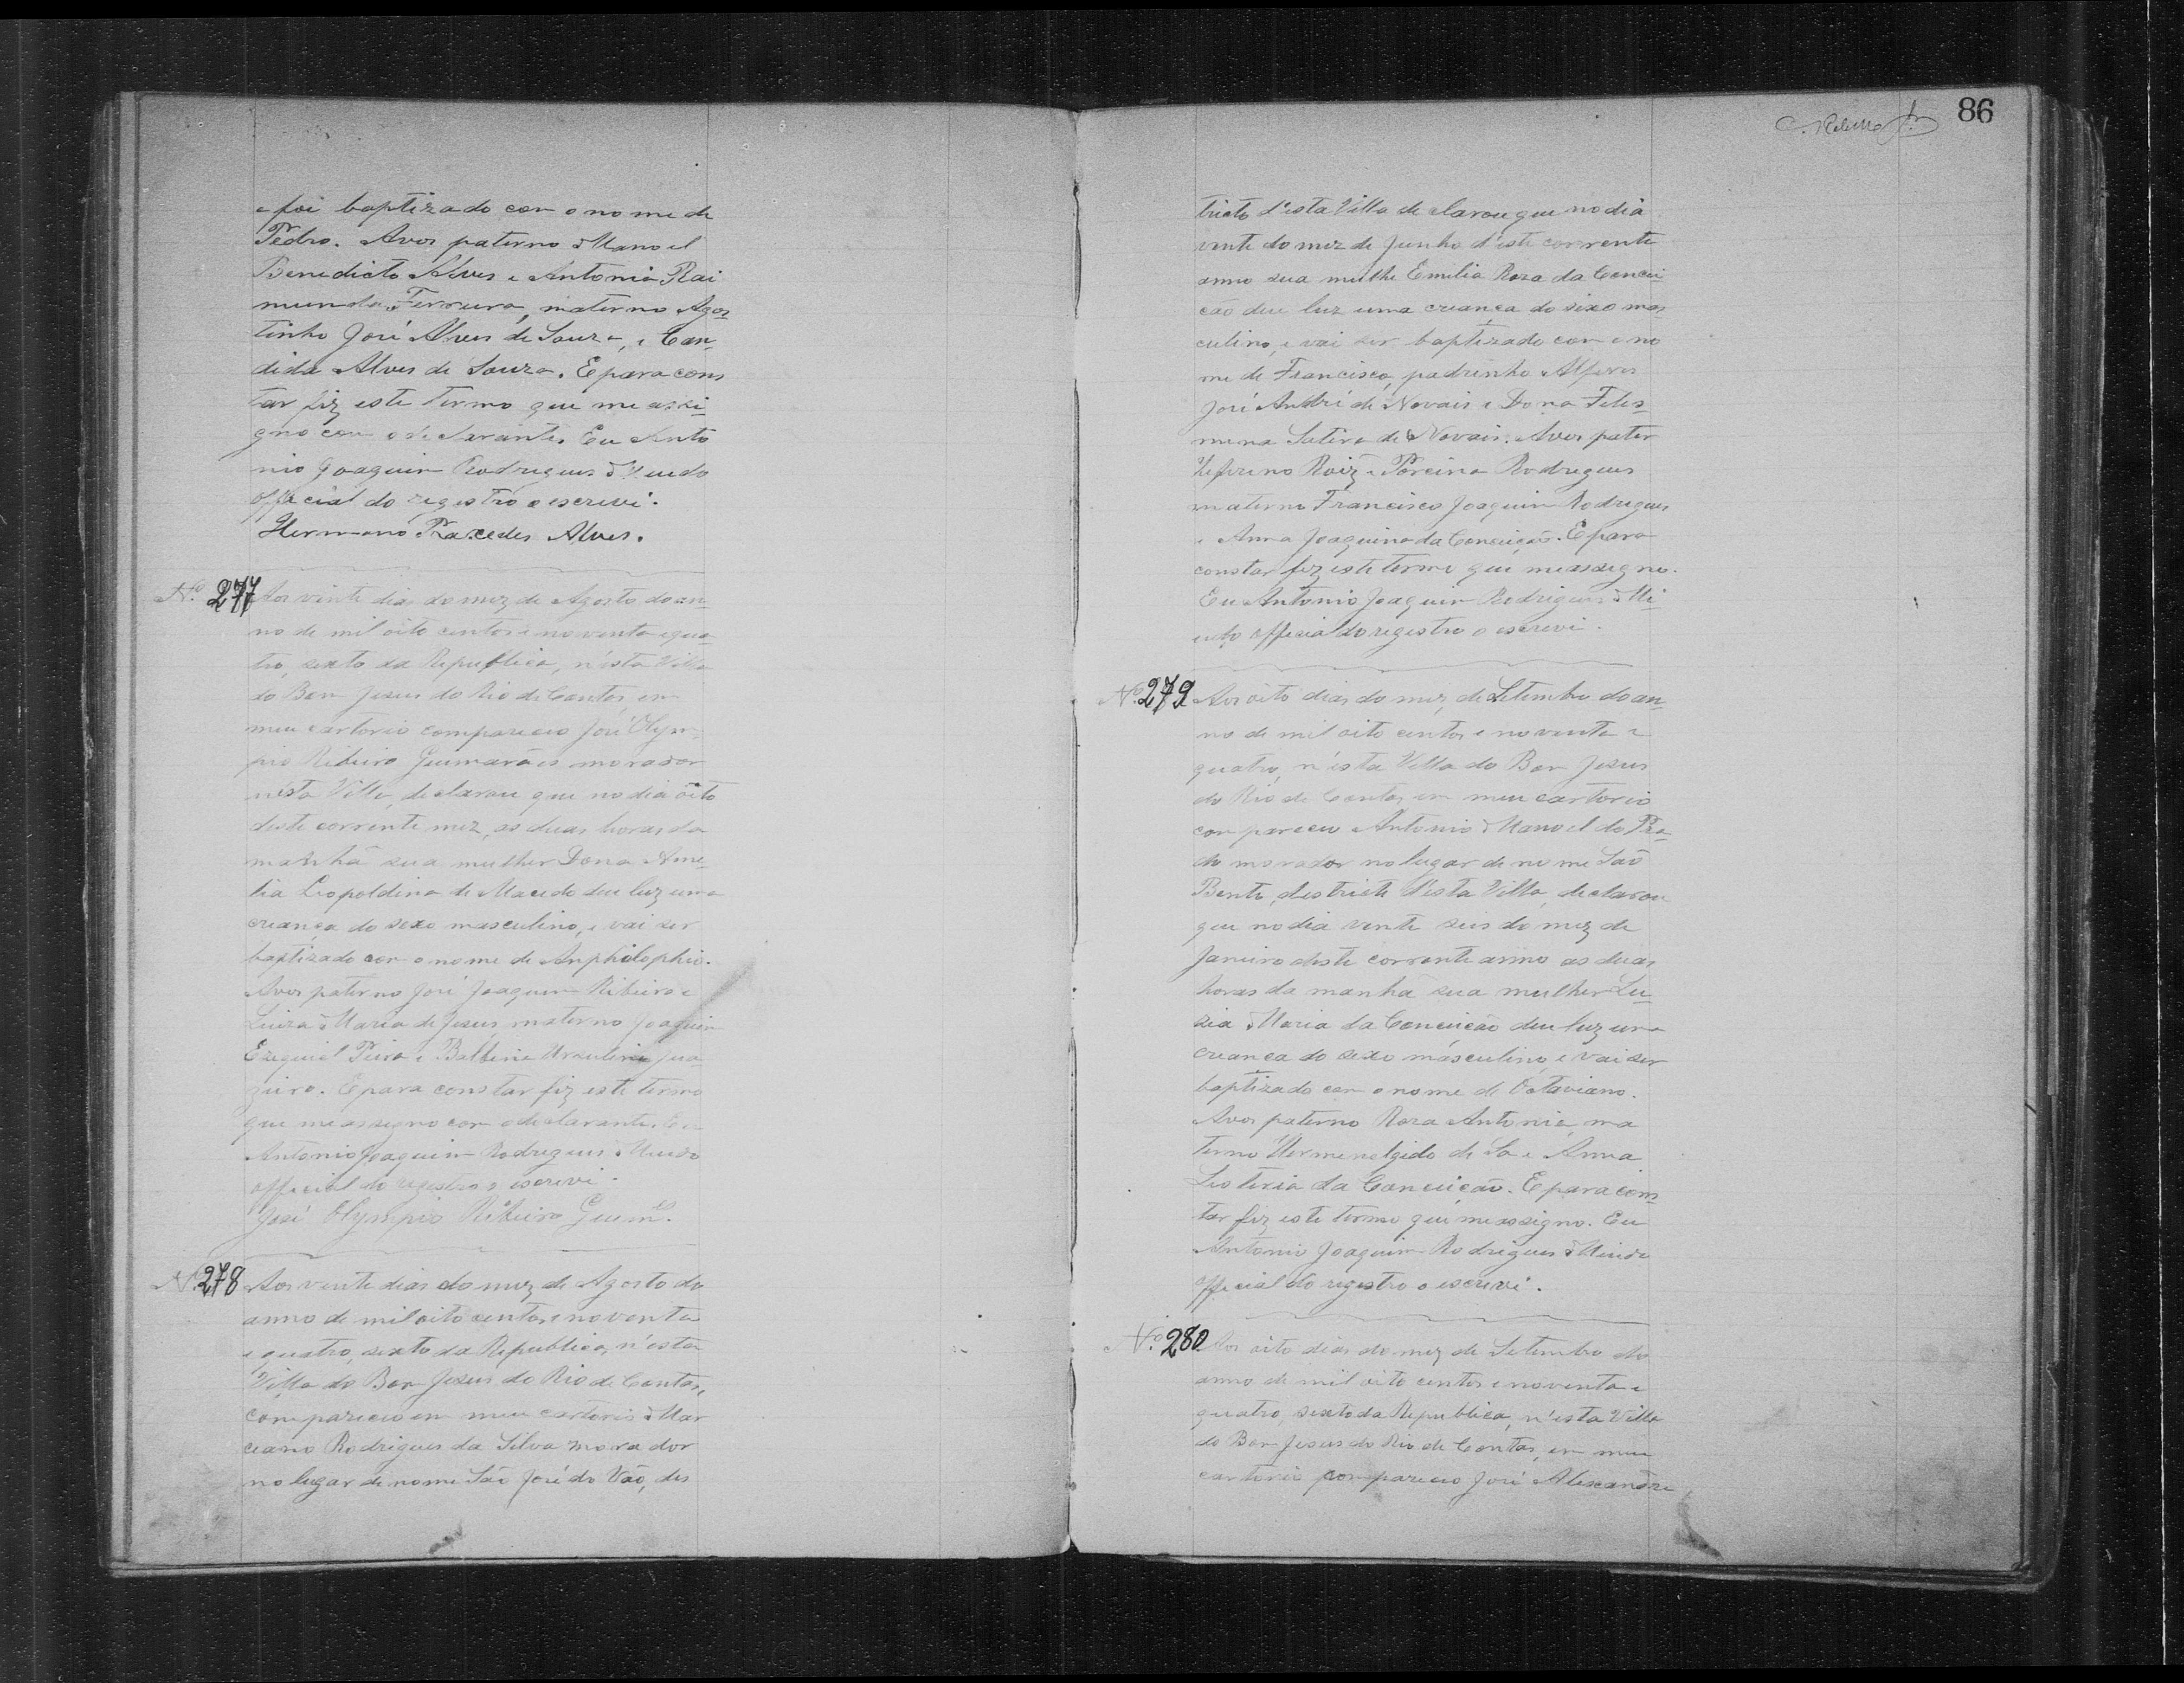 e foi baptizado com o nome de
Pedro. Avos paterno Manoel
Benedicto Alves e Antonia Rai
munda Ferreira, materno Agos
tinho José Alves de Souza, e Can
dida Alves de Souza. E para cons
tar fiz este termo que me assi
gno com o declarante. Eu Anto
nio Joaquim Rodrigues Miudo
official do registro o escrevi.
Hermano Praxedes Alves.
Nº 277 Aos vinte dias do mez de Agosto do an
no de mil oito centos e noventa e qua
tro, sexto da Republica, n'esta Villa
do Bom Jesus do Rio de Contas, em
meu cartorio compareceo José Olym
pio Ribeiro Guimarães morador
n'esta Villa, declarou que no dia oito
deste corrente mez, as duas horas da
manhã sua mulher Dona Ame
lia Leopoldina de Macedo deu luz uma
creança do sexo masculino, e vai ser
baptizado com o nome de Anphilophio.
Avos paterno José Joaquim Ribeiro e
Luiza Maria de Jesus, materno Joaquim
Ezequiel e Balbina Ursulina
E para constar fiz este termo
que me assigno com o declarante. Eu
Antonio Joaquim Rodrigues Miudo
official do registro o escrevi.
José Olympio Ribeiro Guim.es
Nº 278 Aos vente dias do mez de Agosto do
anno de mil oito centos e noventa
e quatro, sexto da Republica, n'esta
Villa do Bom Jesus do Rio de Contas,
compareceo em meu cartorio Mar
ciano Rodrigues da Silva morador
no lugar de nome São José do Vão, des
86
tricto d'esta Villa declarou que no dia
vente do mez de Junho d'este corrente
anno sua mulhe Emilia Roza da Concei
cão deu luz uma creança do sixo mas
culino, e vai ser baptizado com o no
me de Francisco, padrinho Alferes
José André de Novais e Dona Felis
mena Satira de Novais. Avos pater
Zeferino Roiz e Porcina Rodrigues
materno Francisco Joaquim Rodrigues
e Anna Joaquina da Conceição. E para
constar fiz este termo que me assigno.
Eu Antonio Joaquim Rodrigues Mi
udo official do registro o escrevi.
Nº 279 Aos oito dias do mez de Setembro do an
no de mil oito centos e noventa e
quatro, n'esta Villa do Bom Jesus
do Rio de Contas em meu cartorio
compareceu Antonio Manoel do Pra
do morador no lugar de nome São
Bento, destricto desta Villa, declarou
que no dia vente seis do mez de
Janeiro deste corrente anno as duas
horas da manhã sua mulher Lu
zia Maria da Conceição deu luz uma
creança do sexo masculino e vai ser
baptizado com o nome de Octaviano.
Avos paterno Roza Antonia, ma
terno Hermenelgido de Sa e Anna
da Conceição. E para cons
tar fiz este termo que me assigno. Eu
Antonio Joaquim Rodrigues Miudo
official do registro o escrevi.
Nº 280 Aos oito dias do mez de Setembro do
anno de mil oito centos e noventa e
quatro, sexto da Republica, n'esta Villa
do Bom Jesus do Rio de Contas, em meu
cartorio compareceo José Alexandre